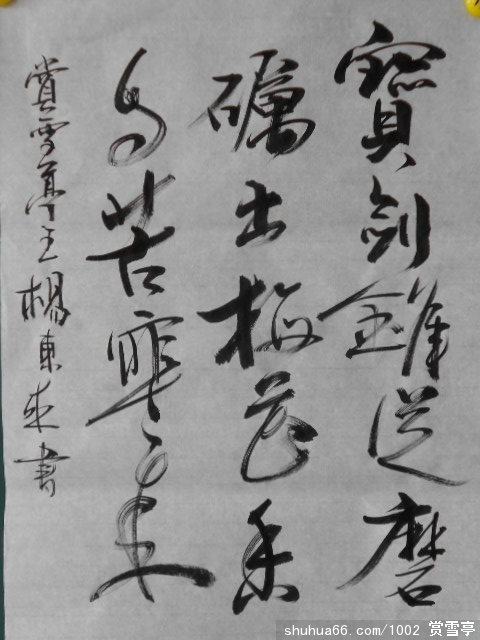 寶劍錐從磨
礪出梅花香
自苦寒來
賞雪亭主楊東来書
shuhua66.com/1002 赏雪亭